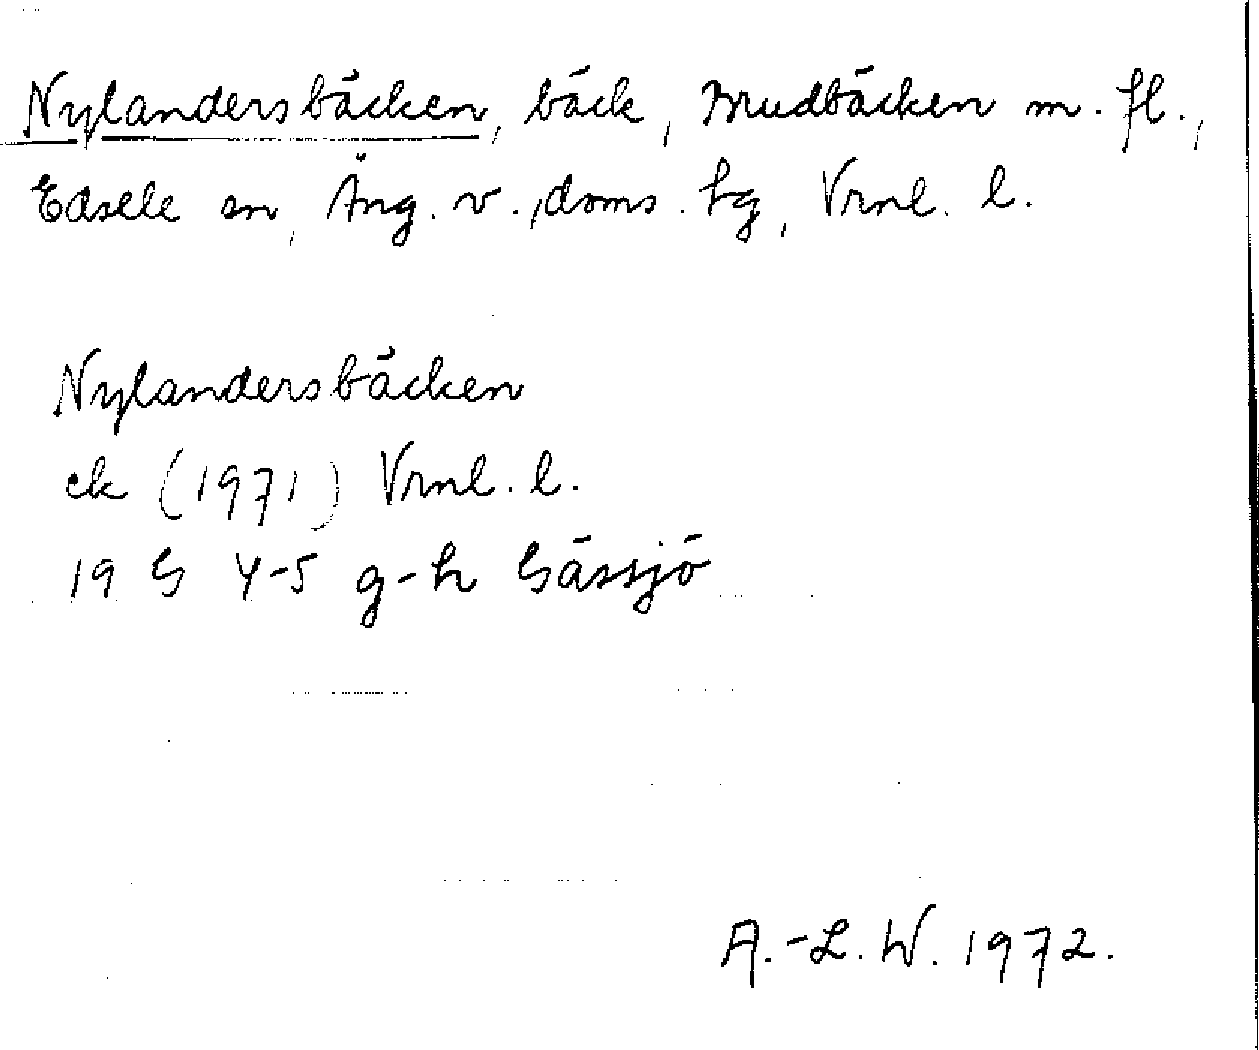 Nylandersbäcken, bäck, Mudbäcken m. fl.,
Edsele sn, Äng. v., doms. hg, Vrnl. l.
Nylandersbäcken
ek (1971) Vrnl. l.
19 G 4-5 g-h Gåssjö
A.-L. W. 1972.